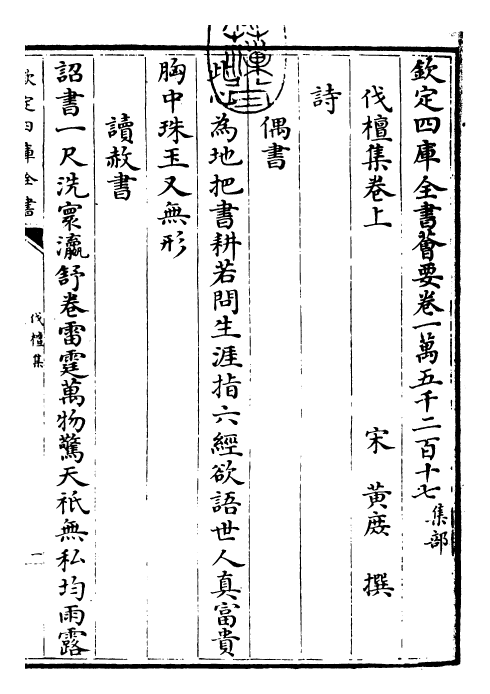 欽定四庫全書薈要卷一萬五千二百十七集部
伐檀集卷上
宋 黃庶 撰
詩
偶書
此心為地把書耕若問生涯指六經欲語世人真富貴
胸中珠玉又無形
讀赦書
詔書一尺洗寰瀛舒卷雷霆萬物驚天祇無私均雨露
欽定四庫全書
伐檀集
一